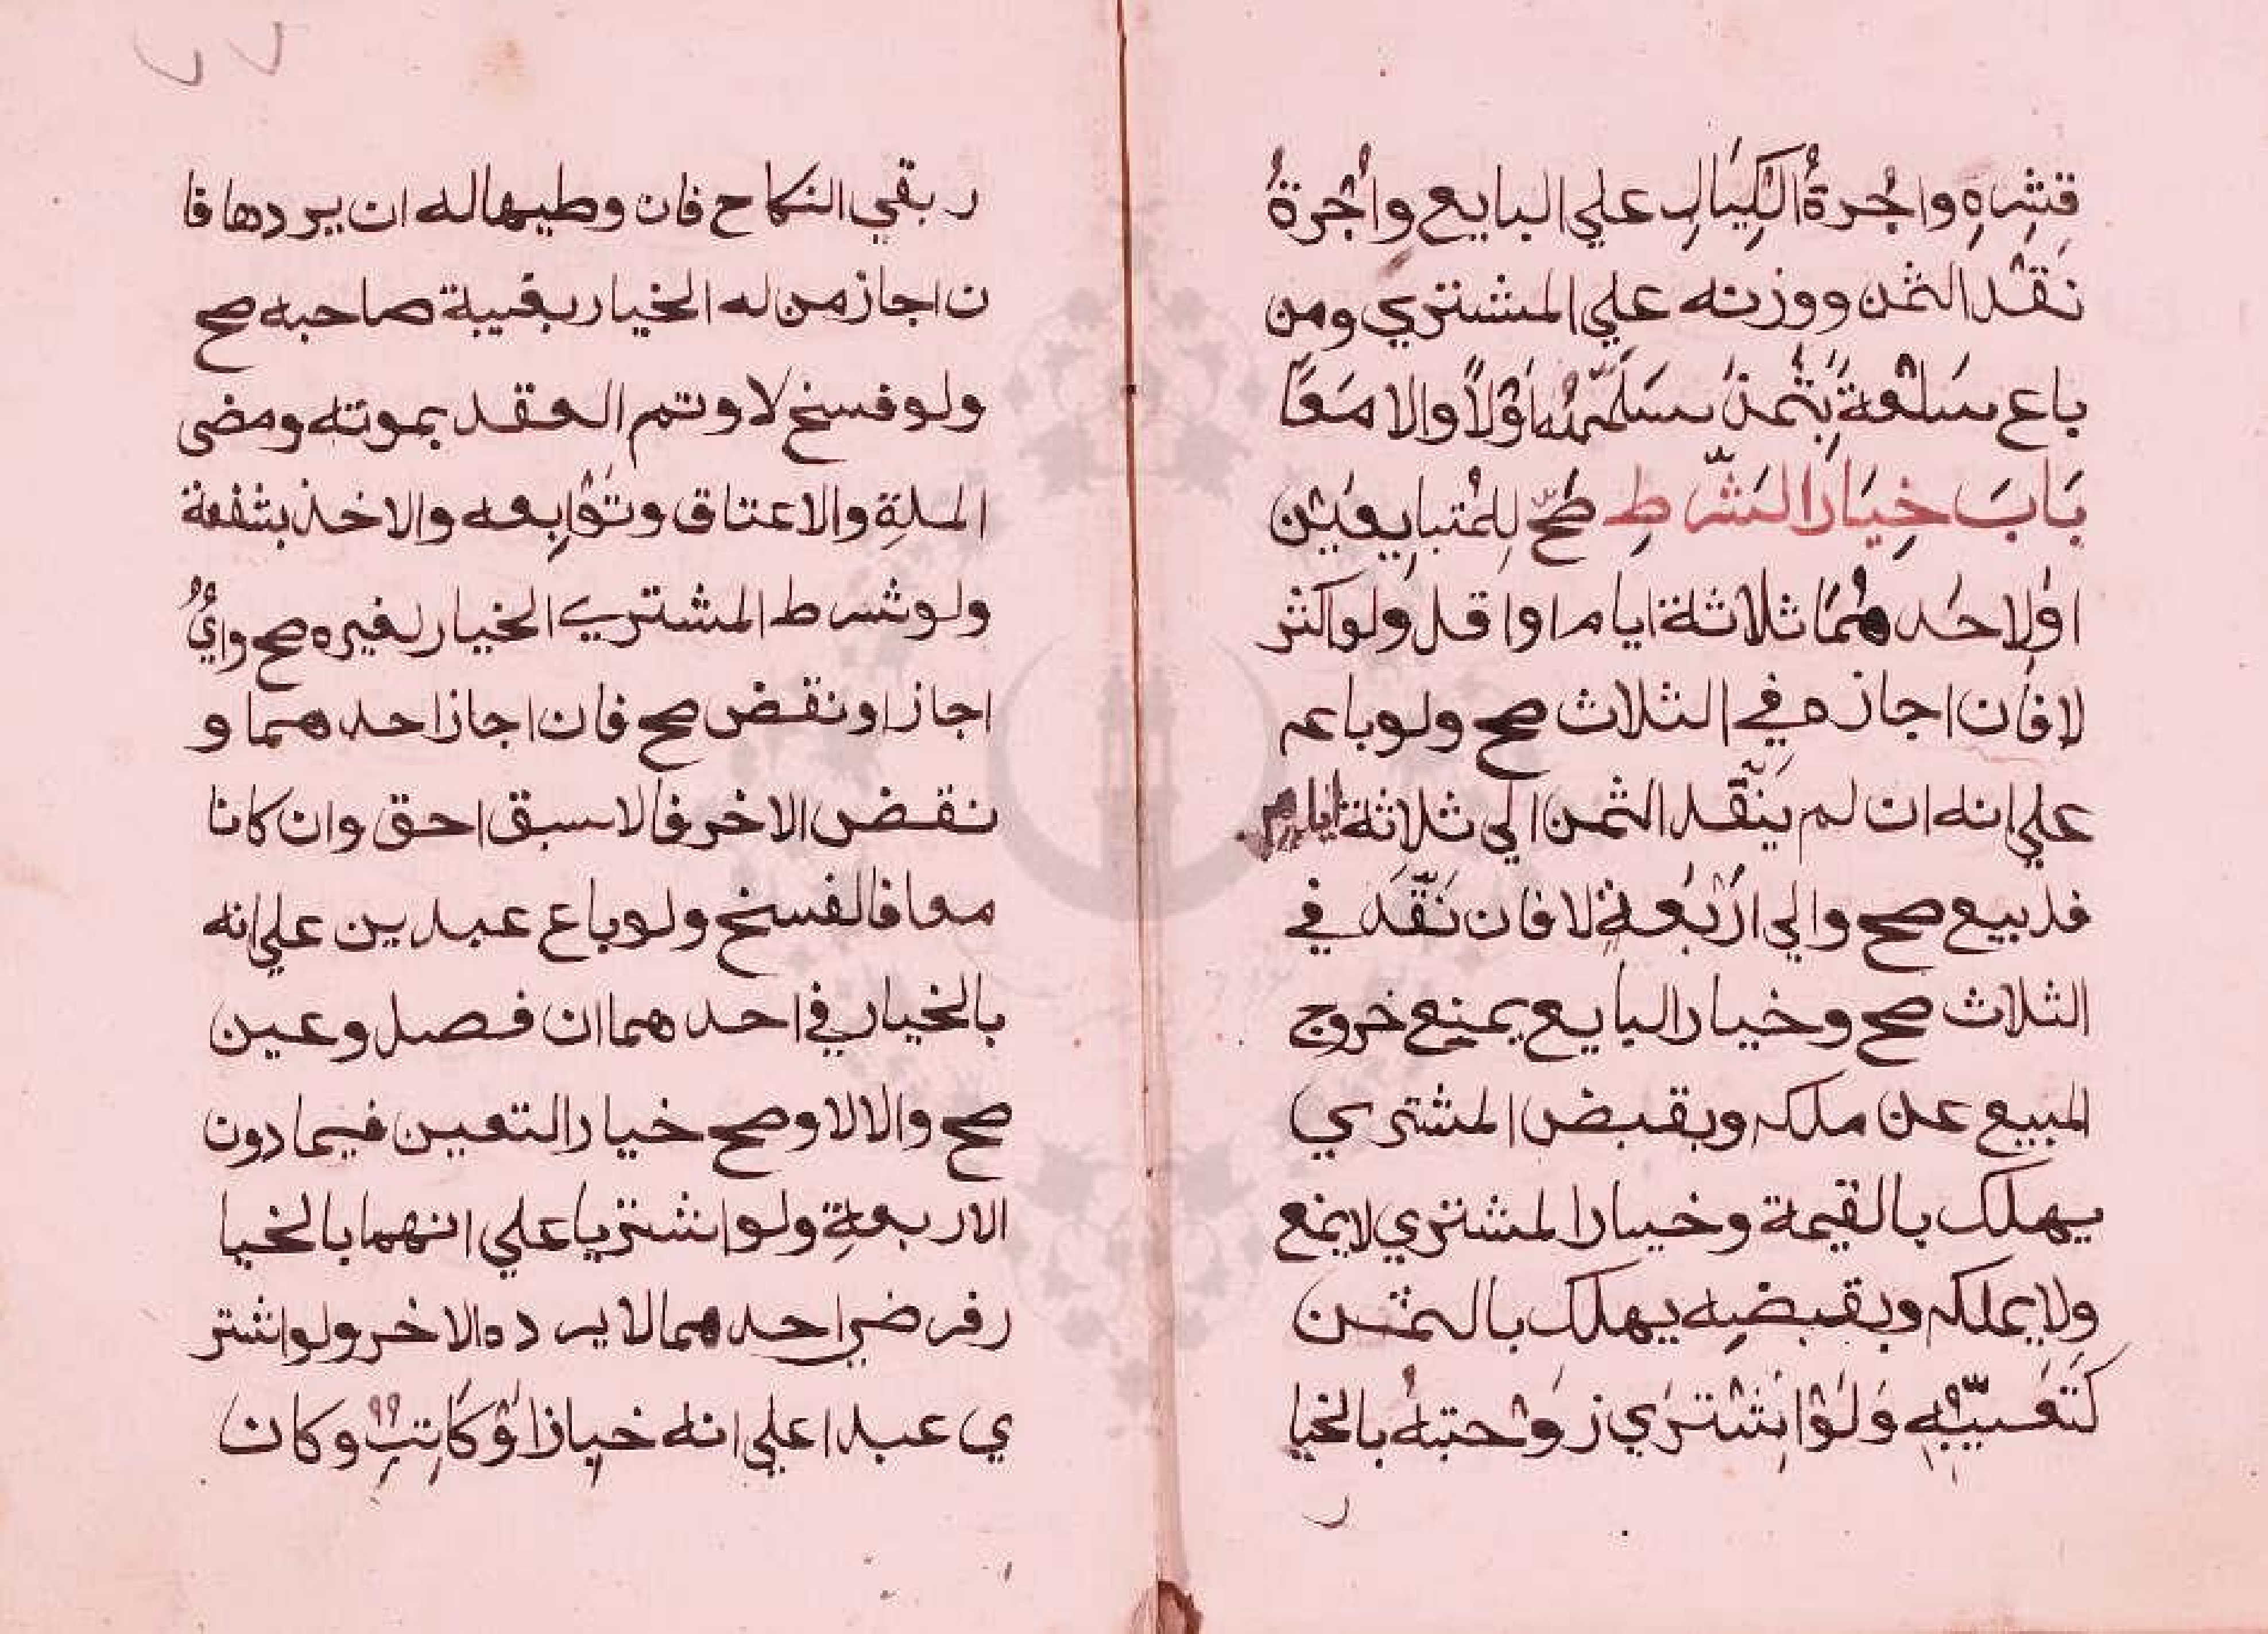 قِشْرِهِ واُجْرةُ الكَيَّالِ علي البايع واُجْرةُ
نَقْد الثمن ووزنه علي المشتري ومن
باع سَلْعةً بِثَمَنٍ سَلَّمَهُ اَوْلاً والا مَعًا
بَابَ خِيَار الشَّرطِ صَحَّ لِلمُتبايِعَيْن
اولاحَدهُمَا ثلاثة ايام او اقل ولو اكثر
لا فان اجازه في الثلاث صح ولو باعم
علي انه ان لم يَنْقُد الثمن الي ثلاثة ايام
فلا بيع صح والي اَرْبَعةٍ لا فان نَقَدَ في
الثلاث صح وخيار البايع يمنع خروج
المبيع عن ملكه وبقبض المشتري
يهلك بالقيمة وخيار المشتري لا يمنع
ولا يملكه وبقبضه يهلك بالثمن
كَتَعَيّبِهِ وَلَوْ اشْتَرَي زَوْجتهُ بالخيا
ر
٧٧
ر بقي النكاح فان وطيها له ان يردها فا
ن اجاز من له الخيار بغيبة صاحبه صح
ولو فسخ لا وتم العقد بموته ومضي
المدةِ والاعتاق وتَوْابِعه والاخذ بشفعة
ولو شرط المشتري الخيار لغيره صح وايُّ
اجاز او نقض صح فان اجاز احدهما و
نقض الاخر فالاسبق احق وان كانا
معا فالفسخ ولو باع عبدين علي انه
بالخيار في احدهما ان فصل وعين
صح والا لا وصح خيار التعين فيما دون
الاربعةِ ولو اشتريا علي انهما بالخيا
ر فرضي احدهما لا يرده الاخر ولو اشتر
ي عبدا علي انه خباز اَوْ كَاتِب وكان